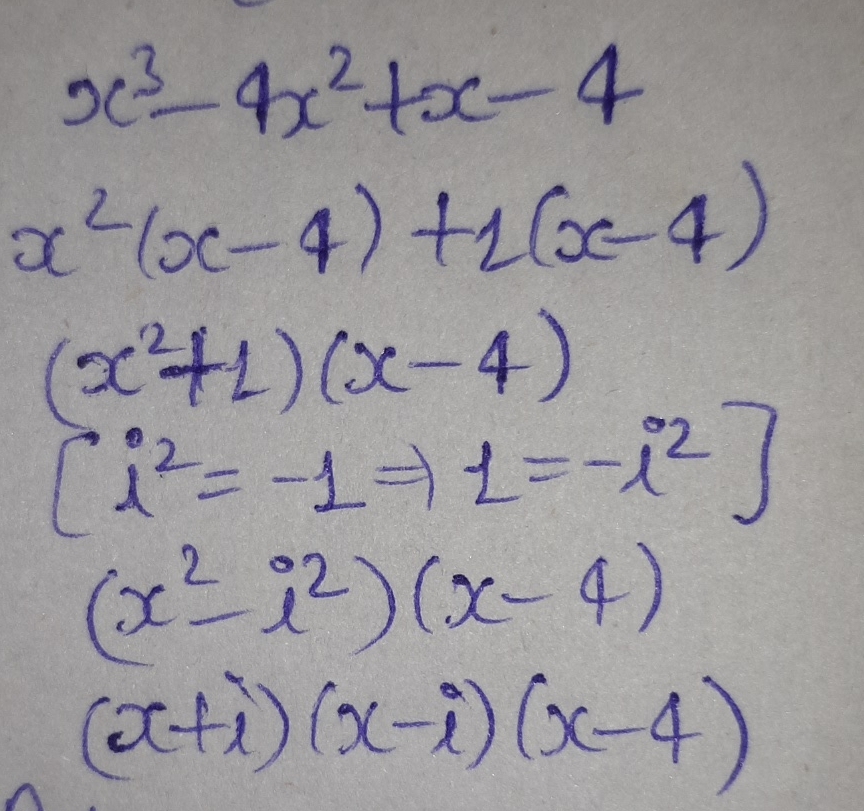 x³ - 4x² + x - 4
x²(x - 4) + 1(x - 4)
(x² + 1)(x - 4)
[i² = -1 ⇒ 1 = -i²]
(x² - i²)(x - 4)
(x + i)(x - i)(x - 4)